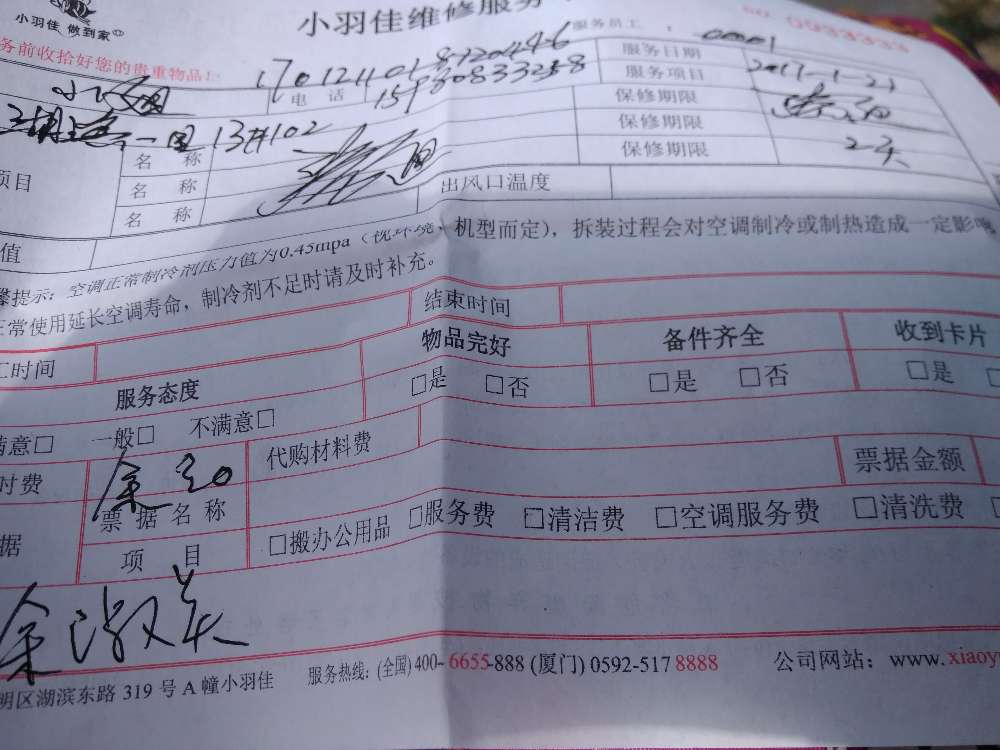 小羽佳 做到家
小羽佳维修服务
NO. 0033333
务前收拾好您的贵重物品！
服务员工 : 00001
电 话
服务日期
2017-1-21
服务项目
13#102
名 称
保修期限
项目
名 称
保修期限
2天
名 称
保修期限
值
出风口温度
馨提示：空调正常制冷剂压力值为0.45mpa（视环境、机型而定），拆装过程会对空调制冷或制热造成一定影响
正常使用延长空调寿命，制冷剂不足时请及时补充。
工时间
结束时间
服务态度
物品完好
备件齐全
收到卡片
满意□ 一般□ 不满意□
□是 □否
□是 □否
□是
时费
代购材料费
票据金额
据
票据名称
项 目
□搬办公用品 □服务费 □清洁费 □空调服务费 □清洗费
明区湖滨东路 319 号 A 幢小羽佳
服务热线：(全国) 400-6655-888 (厦门) 0592-517 8888
公司网站：www.xiaoy